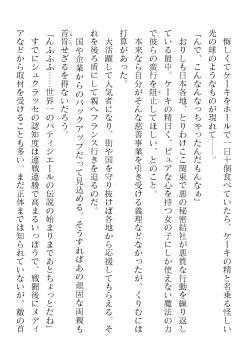 悔しくてケーキをホールで一日十個食べていたら、ケーキの精と名乗る怪しい
光の球のようなものが現れて――
「んで、こんなんなっちゃったんだもんなぁ」
おりしも日本各地、とりわけここ関東で悪の秘密結社が悪質な行動を繰り返し
ている最中。ケーキの精曰く、ピュアな心を持つ女の子にしか使えない魔法の力
で彼らの蛮行を阻止してほしい、とのこと。
本来なら自分がそんな慈善事業を引き受ける義理などなかったが、くりむには
打算があった。
大活躍して人気者になり、街や国を守り抜けば各地から応援してもらえる。そ
れを後ろ盾にして親へフランス行きを迫るのだ。
国や企業からのバックアップだって見込める。そうすればあの頑固な両親も
首肯せざるを得ないだろう。
「んふふふ……世界一のパティシエールの伝説の始まりまであとちょっとだね」
すでにシュクラッセの認知度は連戦連勝で高まるいっぽうで、戦闘後にメディ
アなどから取材を受けることも多い。まだ正体までは知られていないが、敵の首